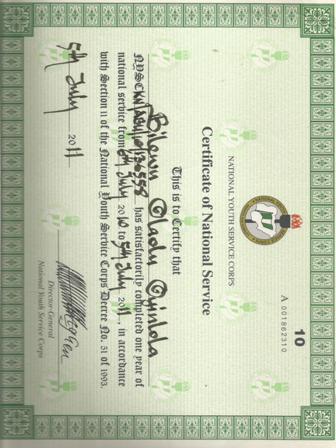 10
A 001862310
NATIONAL YOUTH SERVICE CORPS
Certificate of National Service
This is to Certify that
Oladu Oyinlola
NYSC has satisfactorily completed one year of
national service from 6th July 2010 to 5th July 2011, in accordance
with Section 11 of the National Youth Service Corps Decree No. 51 of 1993.
5th July 2011
Director-General
National Youth Service Corps